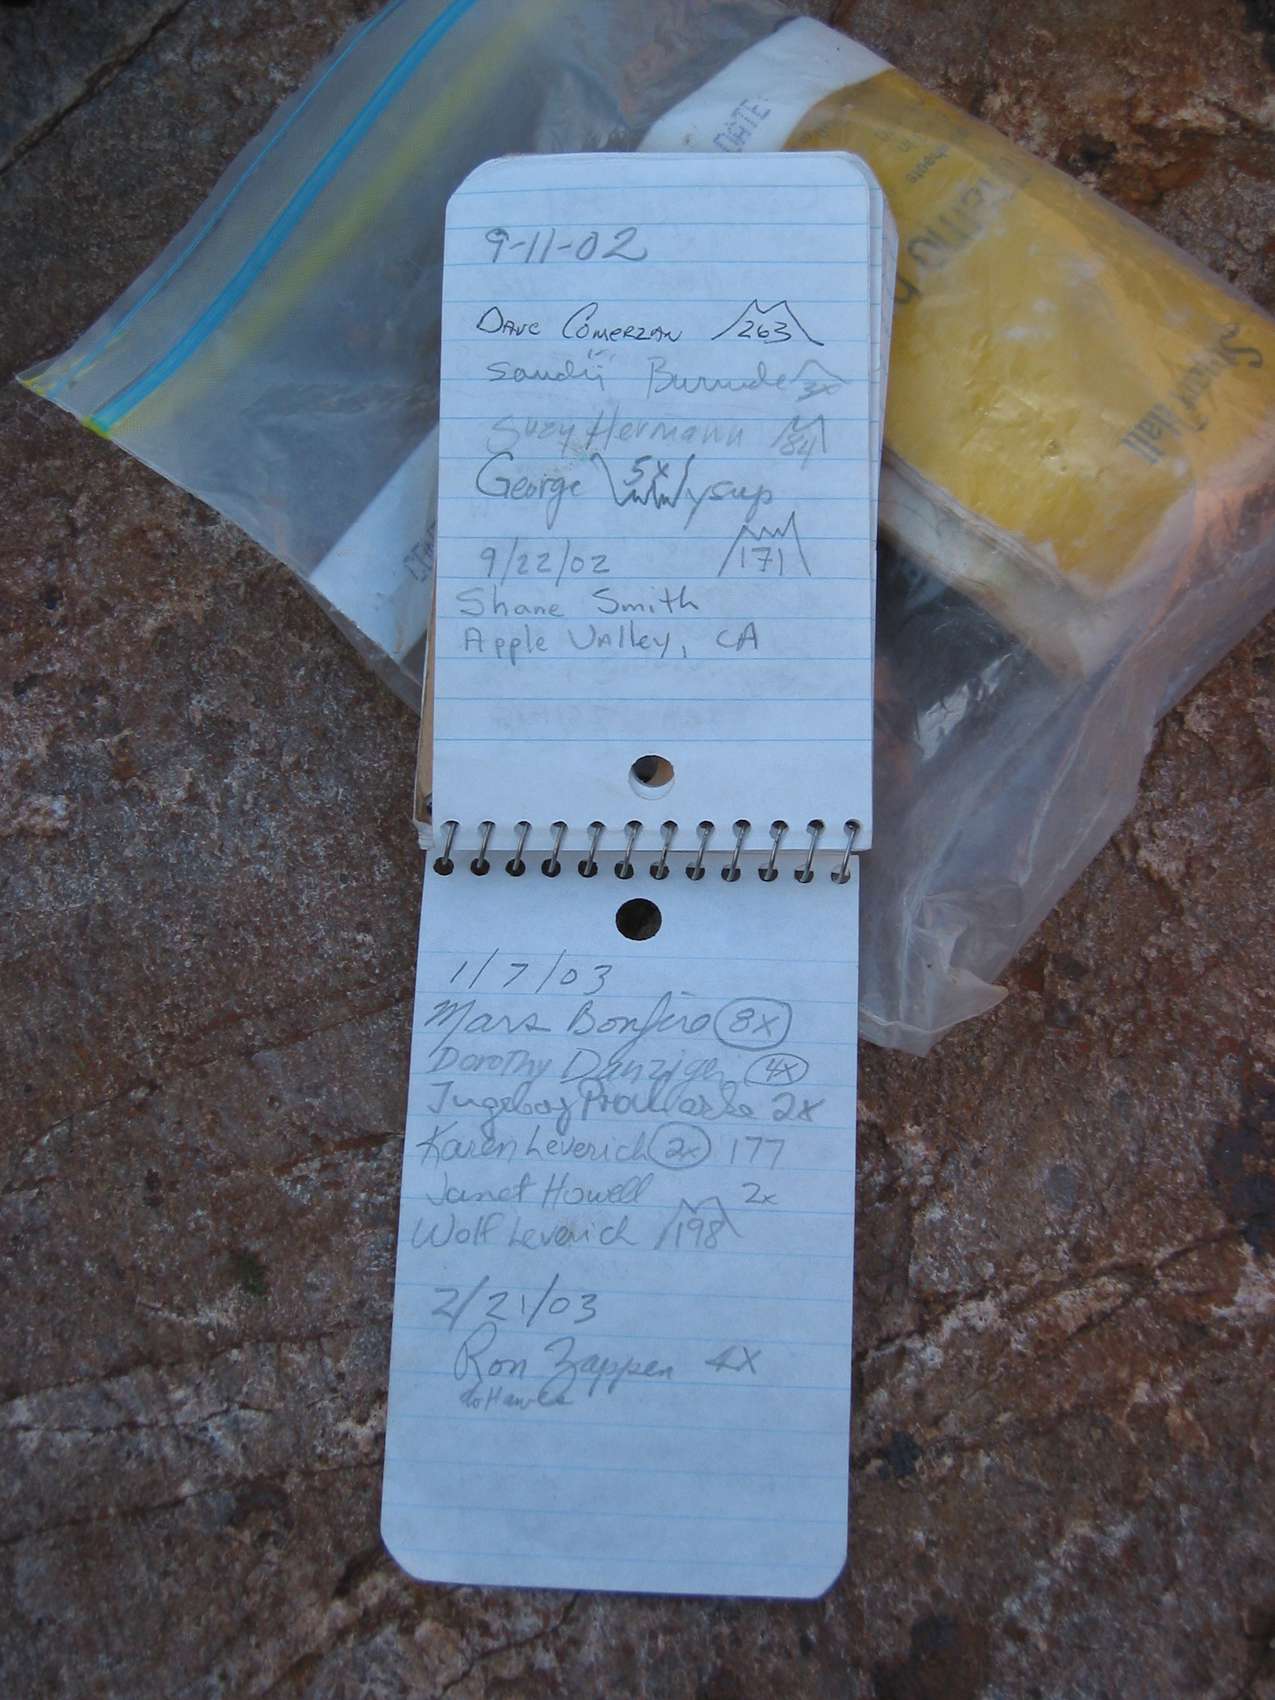 DATE:
9-11-02
Dave Comerzan 263
Sandy Burnside 3x
Suzy Hermann 84
George 5x Wysup
9/22/02 171
Shane Smith
Apple Valley, CA
1/7/03
Mars Bonfire 8x
Dorothy Danziger 4x
2x
Karen Leverich 2x 177
Janet Howell 2x
Wolf Leverich 198
2/21/03
Ron Zappen 4X